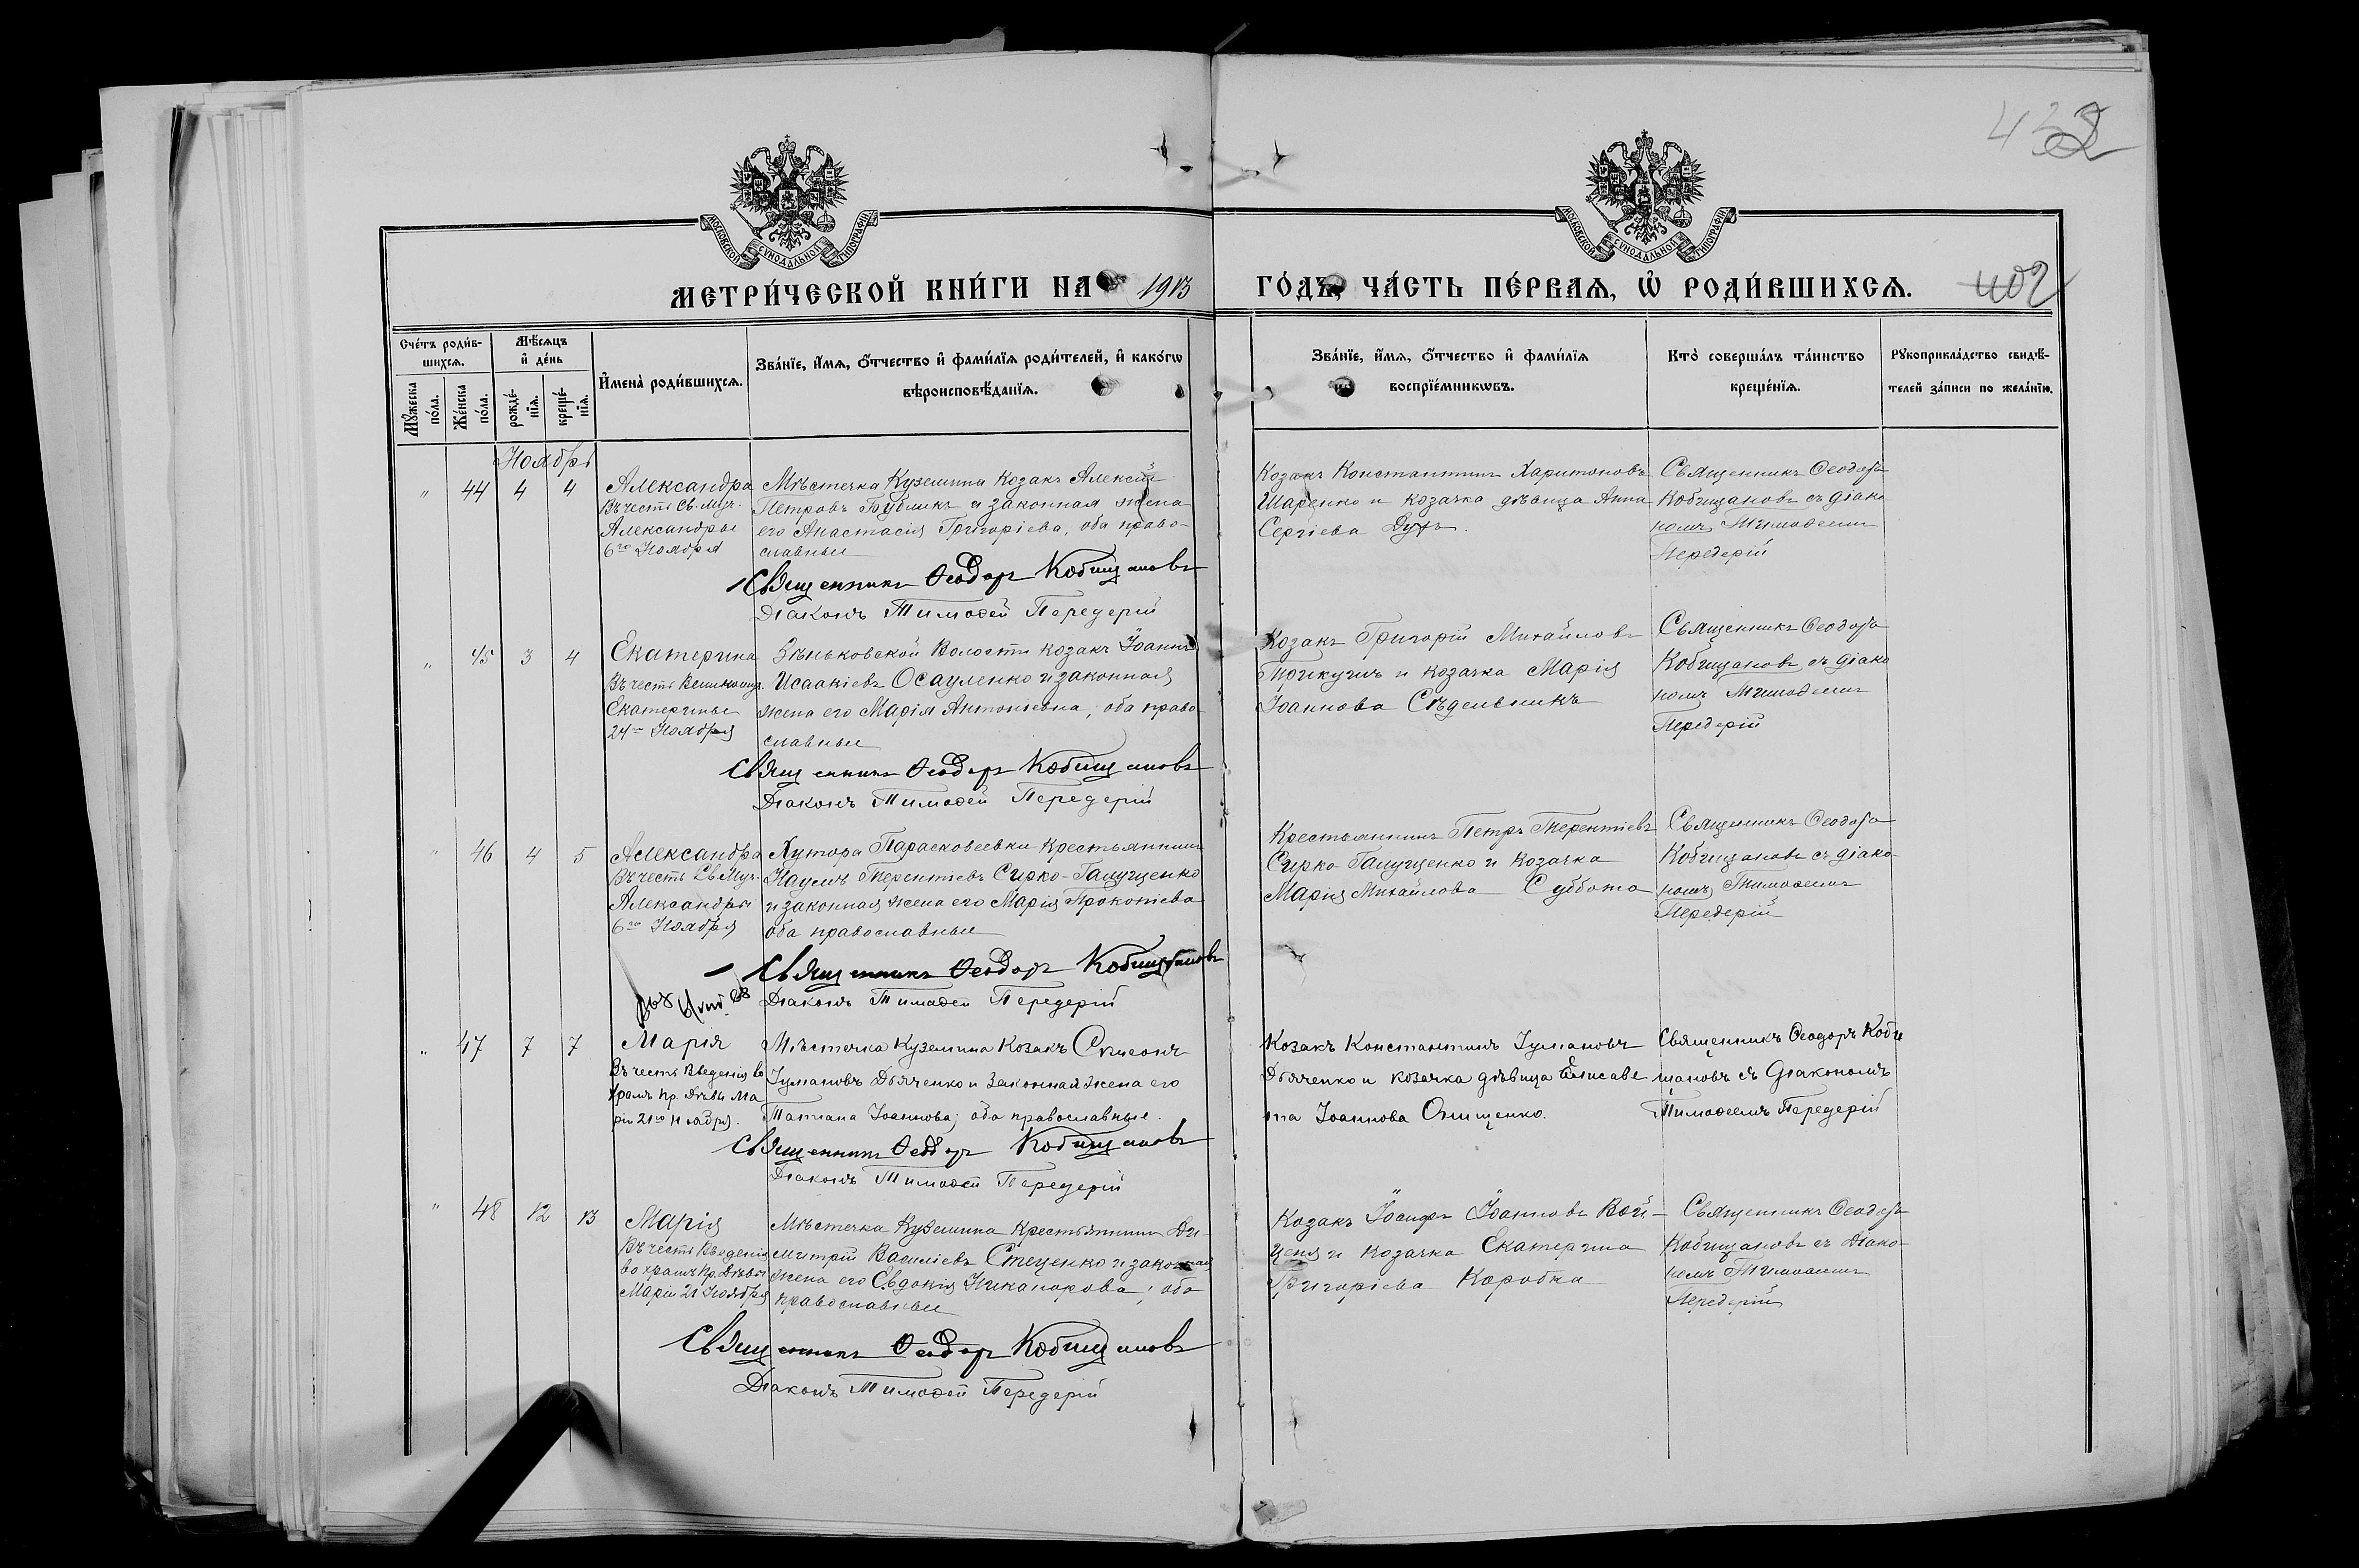 432
МОСКОВСКОЙ СУНОДАЛЬНОЙ ТИПОГРАФІИ
МОСКОВСКОЙ СУНОДАЛЬНОЙ ТИПОГРАФІИ
МЕТРИ́ЧЕСКОЙ КНИ́ГИ НА 1913
ГО́ДЪ, ЧА́СТЬ ПЕ́РВАѦ, Ѡ РОДИ́ВШИХСѦ.
402
Сче́тъ роди́в-
шихсѧ.
Мѣ́сѧцъ
и де́нь
Мꙋ́жеска
по́ла.
Же́нска
по́ла.
рожде́-
нїѧ.
креще́-
нїѧ.
Имена̀ роди́вшихсѧ.
Зва́нїе, и́мѧ, о́тчество и фами́лїѧ роди́телей, и како́гѡ
вѣроисповѣ́данїѧ.
Зва́нїе, и́мѧ, о́тчество и фами́лїѧ
воспрїе́мникѡвъ.
Кто̀ соверша́лъ та́инство
креще́нїѧ.
Рꙋкоприкла́дство свидѣ́-
телей за́писи по жела́нїю.
Ноябрь
" 44 4 4
Александра
Въ честь Св. Муч.
Александры
6го Ноября
Мѣстечка Куземина Козакъ Алексѣй
Петровъ Бубликъ и законная жена
его Анастасія Григорієва, оба право-
славные
Священникъ Ѳеодоръ Кобищановъ
Діаконъ Тимоѳей Передерій
Козакъ Константинъ Харитоновъ
Шаренко и козачка дѣвица Анна
Сергіева Дуръ.
Священникъ Ѳеодоръ
Кобищановъ съ діако
номъ Тимоѳеемъ
Передерій
" 45 3 4
Екатерина
Въ честь Великомуч.
Екатерины
24го Ноября
Зѣньковской Волости козакъ Іоаннъ
Исаакіевъ Осауленко и законная
жена его Марія Антоніевна, оба право-
славные
Священникъ Ѳеодоръ Кобищановъ
Діаконъ Тимоѳей Передерій
Козакъ Григорій Михайловъ
Прикутъ и козачка Марія
Іоаннова Сѣдельникъ
Священникъ Ѳеодоръ
Кобищановъ съ діако
номъ Тимоѳеемъ
Передерій
" 46 4 5
Александра
Въ честь Св Муч.
Александры
6го Ноября
Хутора Парасковеевки Крестьянинъ
Наумъ Терентіевъ Сирко-Галущенко
и законная жена его Марія Прокопіева
оба православные
Священникъ Ѳеодоръ Кобищановъ
Діаконъ Тимоѳей Передерій
Крестьянинъ Петръ Терентіевъ
Сирко-Галущенко и козачка
Марія Михайлова Суббота
Священникъ Ѳеодоръ
Кобищановъ съ діако-
номъ Тимоѳеемъ
Передерій
" 47 7 7
Марія
Въ честь Введенія во
храмъ Пр. Дѣвы Ма
ріи 21го Ноября.
Мѣстечка Куземина Козакъ Симеонъ
Іуліановъ Дьяченко и законная жена его
Татіана Іоаннова; оба православные.
Священникъ Ѳеодоръ Кобищановъ
Діаконъ Тимоѳей Передерій
Козакъ Константинъ Іуліановъ
Дьяченко и козачка дѣвица Елисаве
та Іоаннова Онищенко.
Священникъ Ѳеодоръ Коби
щановъ съ Діакономъ
Тимоѳеемъ Передерій
" 48 12 13
Марія
Въ честь Введенія
во храмъ Пр. Дѣвы
Маріи 21 Ноября
Мѣстечка Куземина Крестьянинъ Ди-
митрій Василіевъ Стеценко и законная
жена его Евдокія Никанорова; оба
православные
Священникъ Ѳеодоръ Кобищановъ
Діаконъ Тимоѳей Передерій
Козакъ Іосифъ Іоанновъ Вой-
ценя и козачка Екатерина
Григоріева Коробка
Священникъ Ѳеодоръ
Кобищановъ съ Діако-
номъ Тимоѳеемъ
Передерій